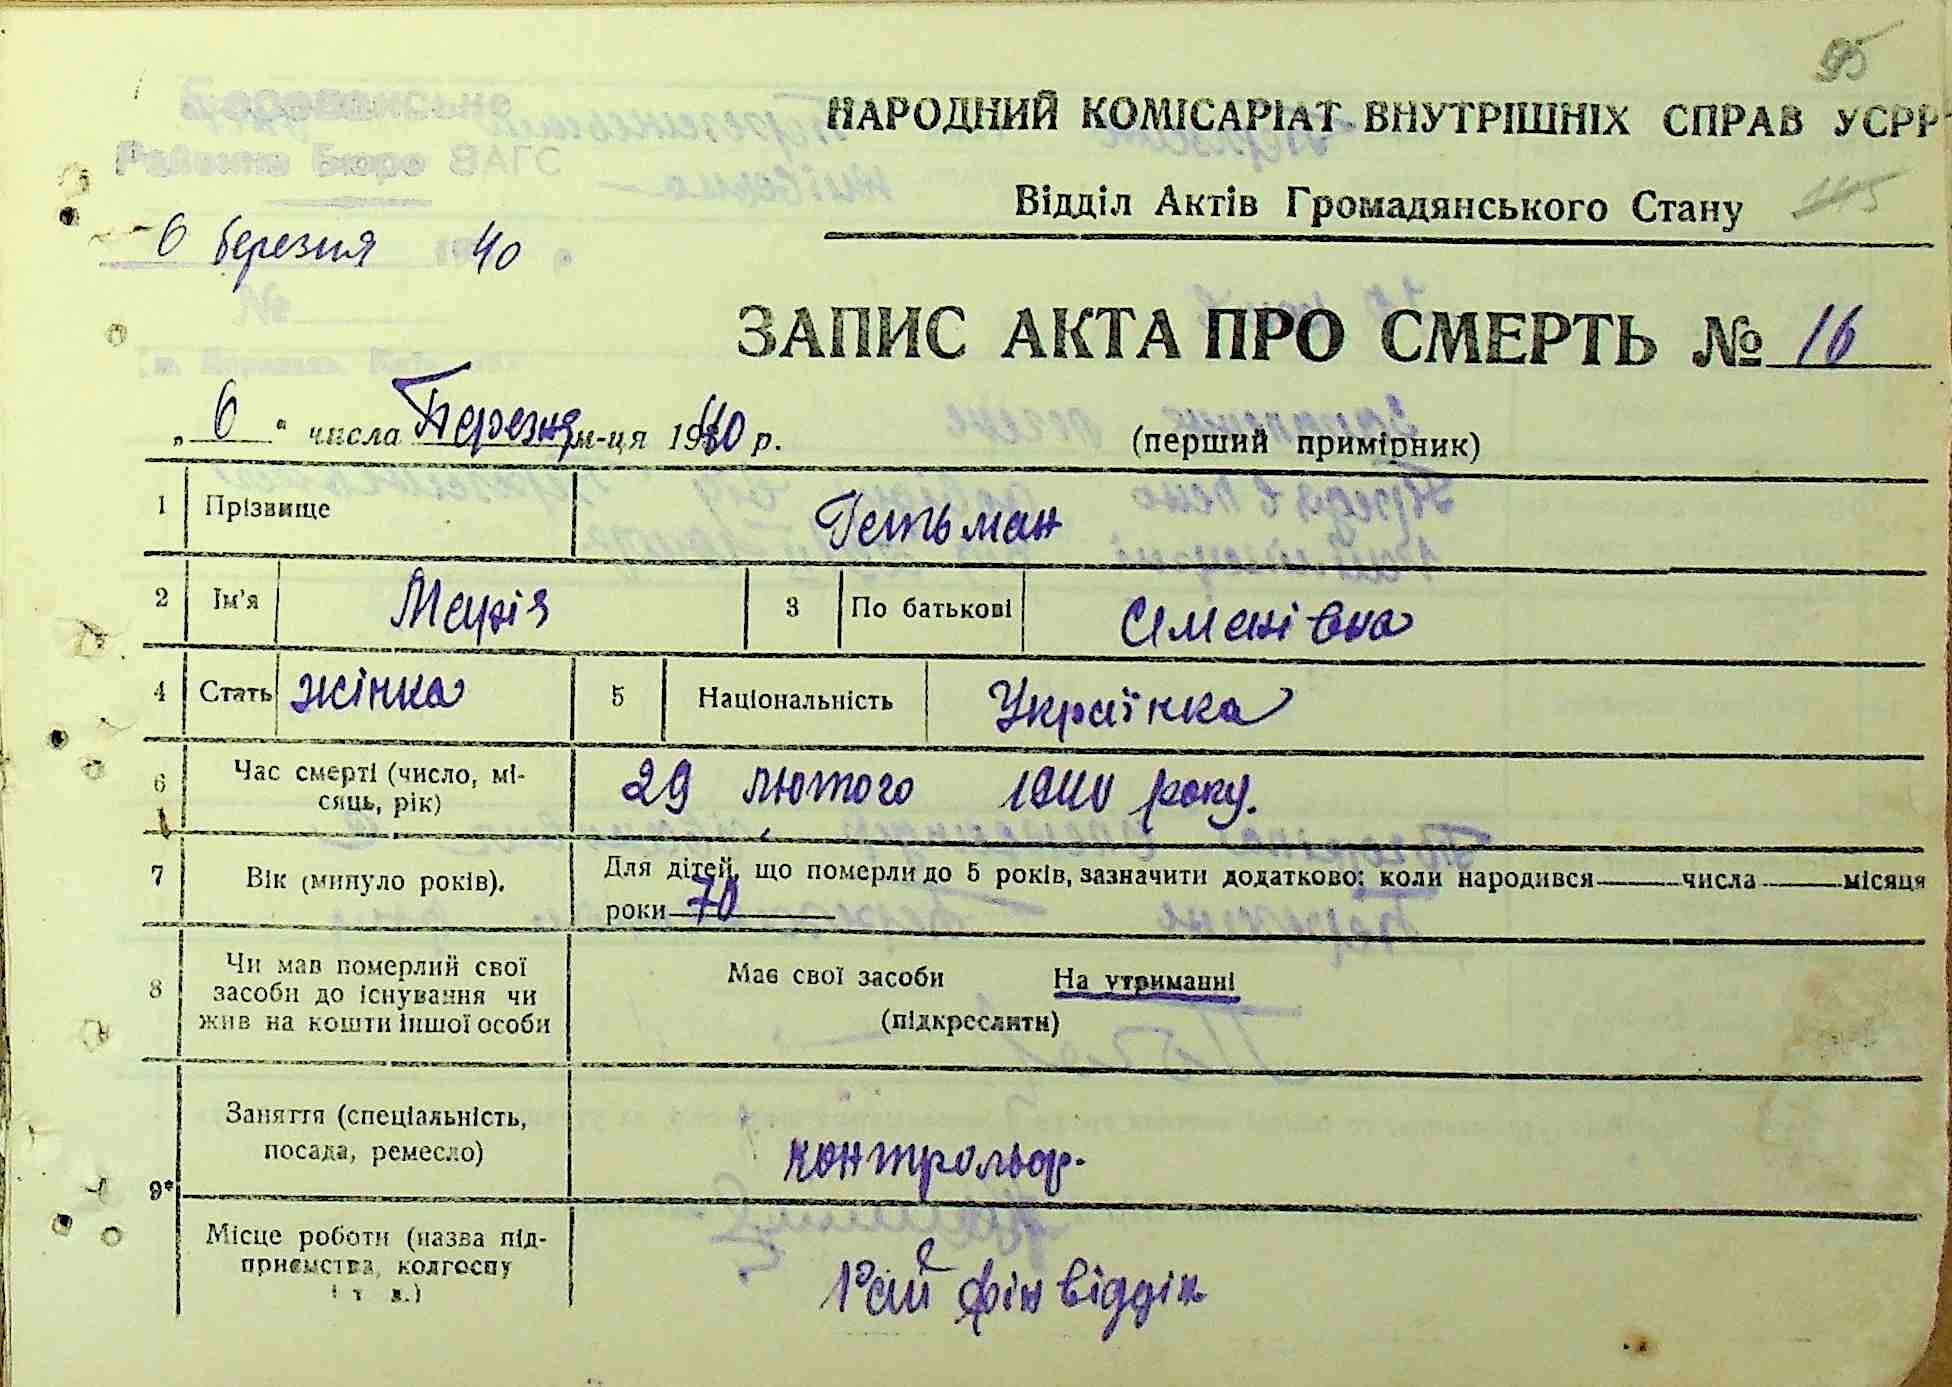 95
НАРОДНИЙ КОМІСАРІАТ ВНУТРІШНІХ СПРАВ УСРР
Районне Бюро ЗАГС
Відділ Актів Громадянського Стану
6 березня 40
№
ЗАПИС АКТА ПРО СМЕРТЬ № 16
„ 6 “ числа Березня м-ця 1940 р.
(перший примірник)
1 Прізвище Гетьман
2 Ім'я Марія 3 По батькові Сименівна
4 Стать жінка 5 Національність Українка
6 Час смерті (число, мі-
сяць, рік) 29 лютого 1940 року.
7 Вік (минуло років). Для дітей, що померли до 5 років, зазначити додатково: коли народився числа місяця
роки 70
8 Чи мав померлий свої
засоби до існування чи
жив на кошти іншої особи
Має свої засоби На утриманні
(підкреслити)
9*
Заняття (спеціальність,
посада, ремесло) контрольор.
Місце роботи (назва під-
приємства, колгоспу
і т. д.)
Рай фін відділ